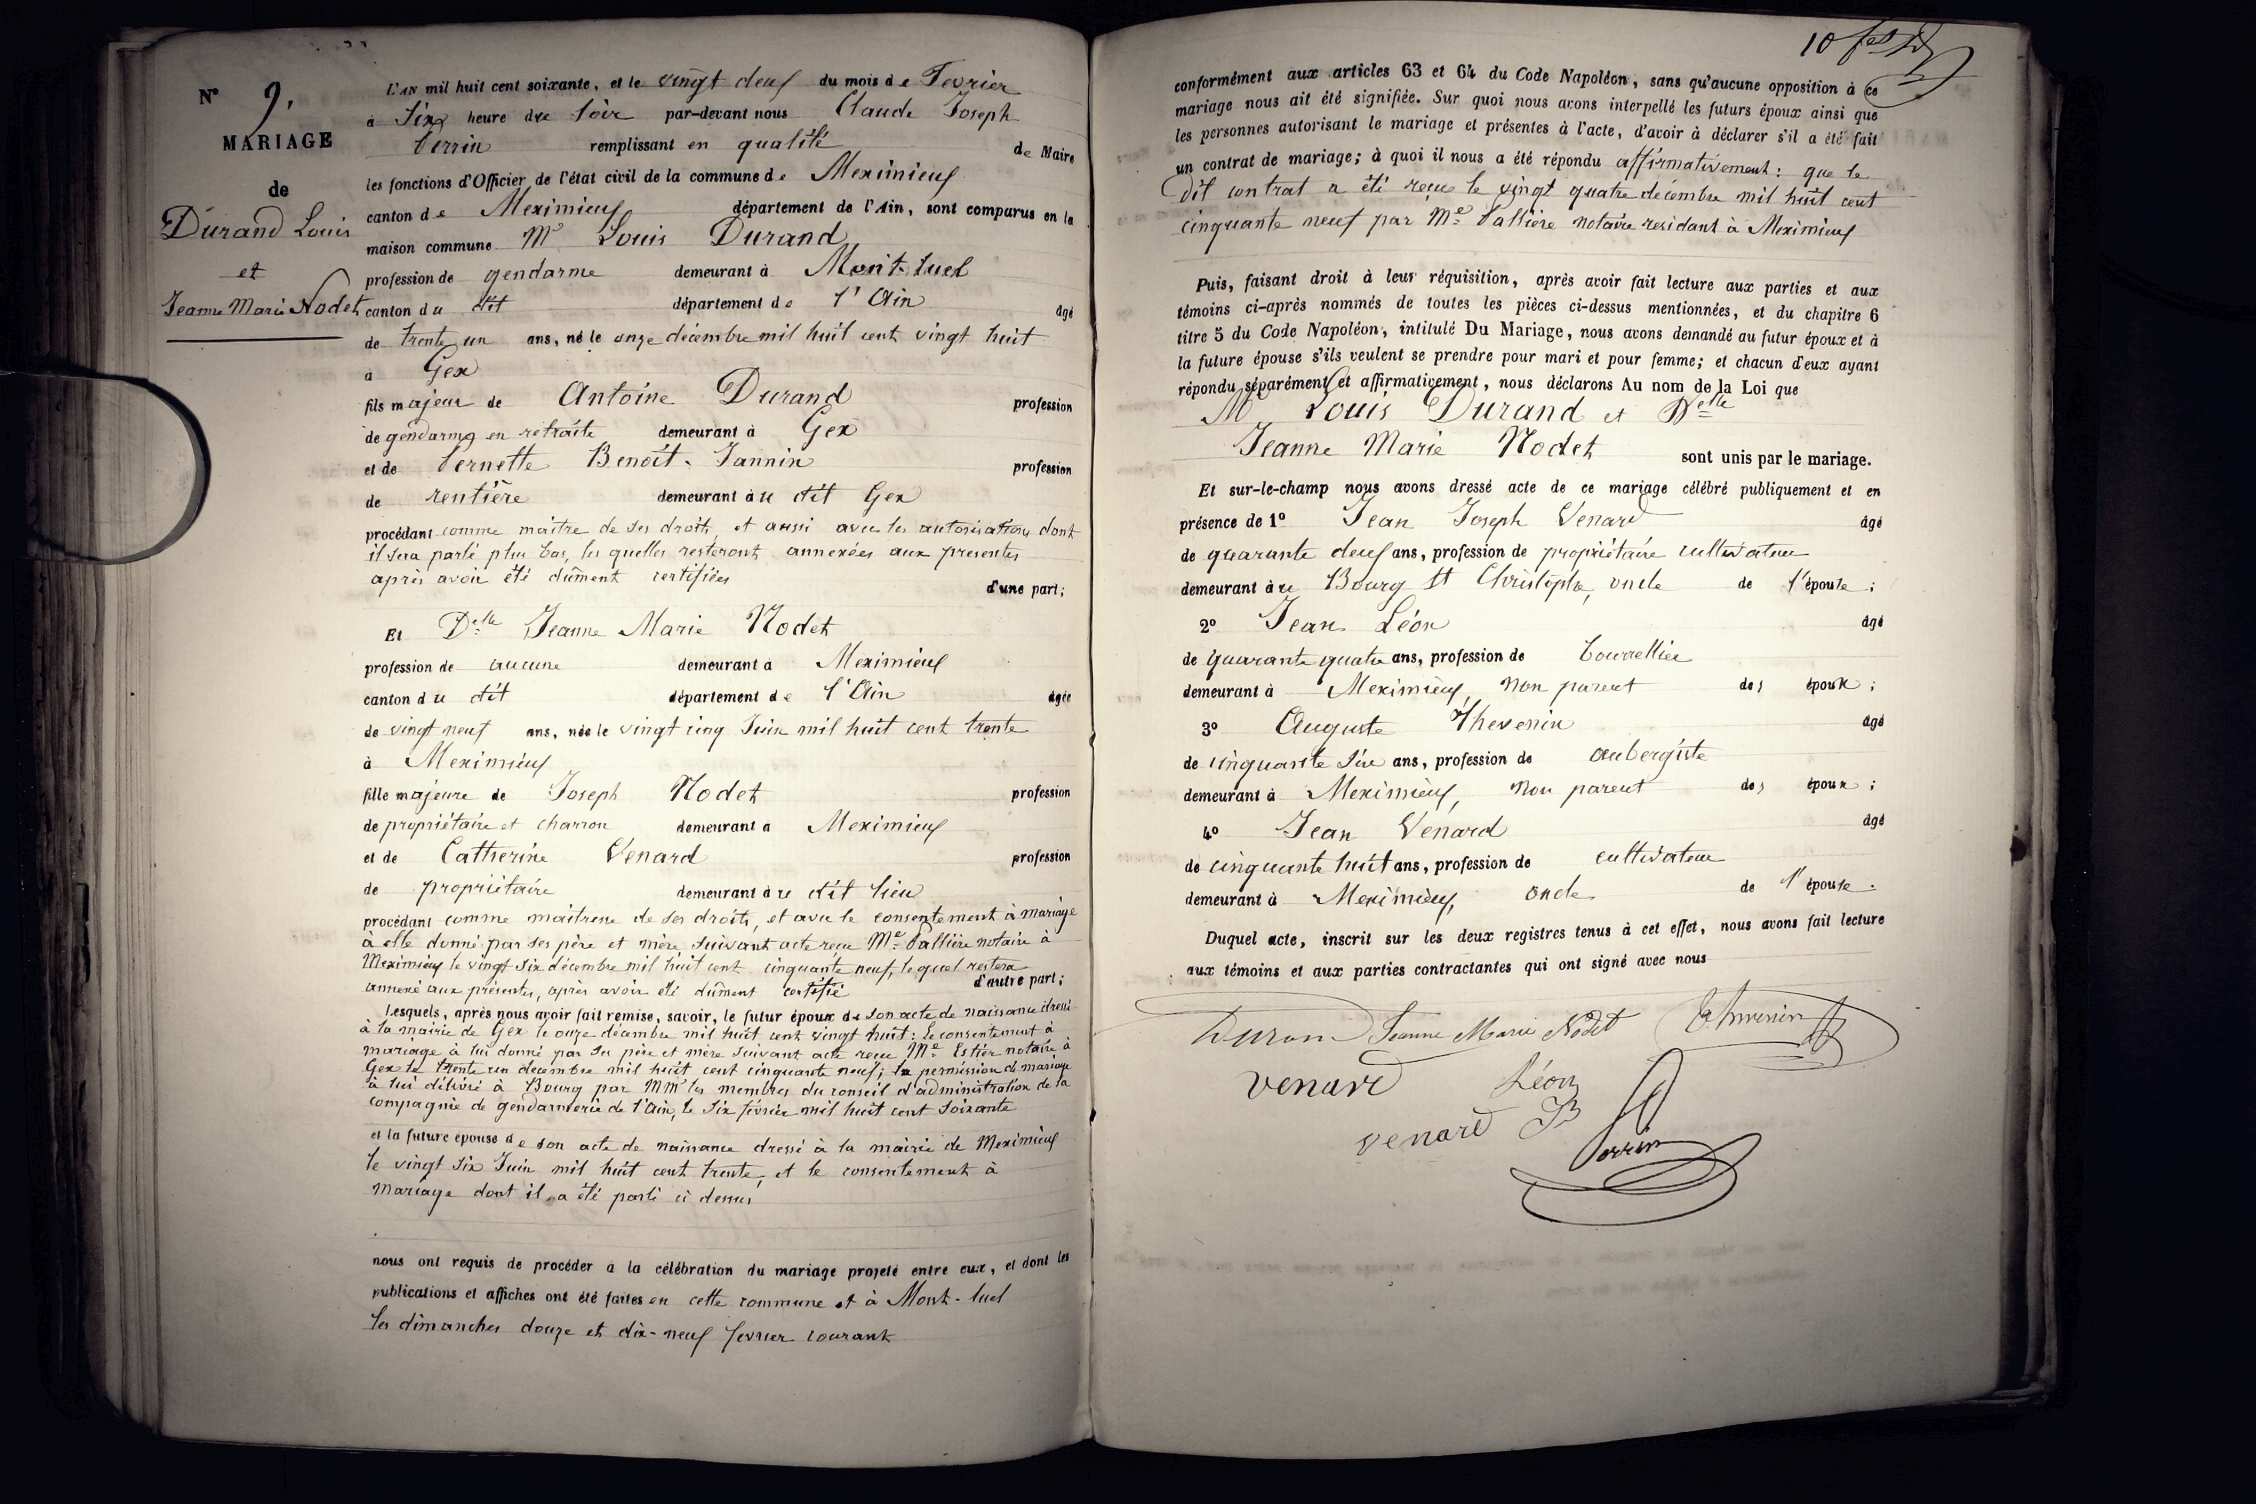 N° 9.
MARIAGE
de
Durand Louis
et
Jeanne Marie Nodet
L'AN mil huit cent soixante, et le vingt deux du mois de Fevrier
à Six heure du Soir par-devant nous Claude Joseph
Perrin remplissant en qualité de Maire
les fonctions d'Officier de l'état civil de la commune de Meximieux
canton de Meximieux département de l'Ain, sont comparus en la
maison commune Mr Louis Durand
profession de gendarme demeurant à Mont-luel
canton du dit département de l'Ain âgé
de trente un ans, né le onze décembre mil huit cent vingt huit
à Gex
fils majeur de Antoine Durand profession
de gendarme en retraite demeurant à Gex
et de Pernette Benoît-Jannin profession
de rentière demeurant àu dit Gex
procédant comme maître de ses droits, et aussi avec les autorisations dont
il sera parlé plus bas, les quelles resteront annexées aux presentes
après avoir été dûment certifiées d'une part;
Et Delle Jeanne Marie Nodet
profession de aucune demeurant à Meximieux
canton du dit département de l'Ain âgée
de vingt neuf ans, née le vingt cinq Juin mil huit cent trente
à Meximieux
fille majeure de Joseph Nodet profession
de propriétaire et charron demeurant à Meximieux
et de Catherine Venard profession
de propriétaire demeurant àu dit lieu
procédant comme maitresse de ses droits, et avec le consentement à mariage
à elle donné par ses père et mère suivant acte reçu Me Pallière notaire à
Meximieux le vingt six décembre mil huit cent cinquante neuf, lequel restera
annexé aux présentes, après avoir été dûment certifié d'autre part;
Lesquels, après nous avoir fait remise, savoir, le futur époux de son acte de naissance dressé
à la mairie de Gex le onze décembre mil huit cent vingt huit: Le consentement à
mariage à lui donné par ses père et mère suivant acte reçu Me Estier notaire à
Gex le trente un décembre mil huit cent cinquante neuf; la permission de mariage
à lui délivré à Bourg par MMrs les membres du conseil d'administration de la
compagnie de gendarmerie de l'Ain, le six février mil huit cent soixante
et la future épouse de son acte de naissance dressé à la mairie de Meximieux
le vingt six Juin mil huit cent trente, et le consentement à
mariage dont il a été parlé ci dessus
nous ont requis de procéder à la célébration du mariage projeté entre eux, et dont les
publications et affiches ont été faites en cette commune et à Mont-luel
les dimanches douze et dix-neuf fevrier courant
10
conformément aux articles 63 et 64 du Code Napoléon, sans qu'aucune opposition à ce
mariage nous ait été signifiée. Sur quoi nous avons interpellé les futurs époux ainsi que
les personnes autorisant le mariage et présentes à l'acte, d'avoir à déclarer s'il a été fait
un contrat de mariage; à quoi il nous a été répondu affirmativement: que le
dit contrat a été reçu le vingt quatre décembre mil huit cent
cinquante neuf par Me Pallière notaire residant à Meximieux
Puis, faisant droit à leur réquisition, après avoir fait lecture aux parties et aux
témoins ci-après nommés de toutes les pièces ci-dessus mentionnées, et du chapitre 6
titre 5 du Code Napoléon, intitulé Du Mariage, nous avons demandé au futur époux et à
la future épouse s'ils veulent se prendre pour mari et pour femme; et chacun d'eux ayant
répondu séparément et affirmativement, nous déclarons Au nom de la Loi que
Mr Louis Durand et Delle
Jeanne Marie Nodet sont unis par le mariage.
Et sur-le-champ nous avons dressé acte de ce mariage célébré publiquement et en
présence de 1° Jean Joseph Venard âgé
de quarante deux ans, profession de propriétaire cultivateur
demeurant à Bourg St Christophe, oncle de l'épouse;
2° Jean Léon âgé
de quarante quatre ans, profession de bourrellier
demeurant à Meximieux, non parent des époux;
3° Auguste Thevenin âgé
de cinquante six ans, profession de aubergiste
demeurant à Meximieux, non parent des époux;
4° Jean Venard âgé
de cinquante huit ans, profession de cultivateur
demeurant à Meximieux, oncle de l'épouse.
Duquel acte, inscrit sur les deux registres tenus à cet effet, nous avons fait lecture
aux témoins et aux parties contractantes qui ont signé avec nous
Durand Jeanne Marie Nodet Thevenin
venard Léon
venard JB
Perrin